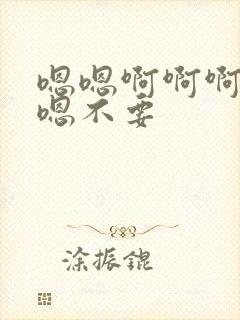 嗯嗯啊啊啊
嗯不要
涂振锟